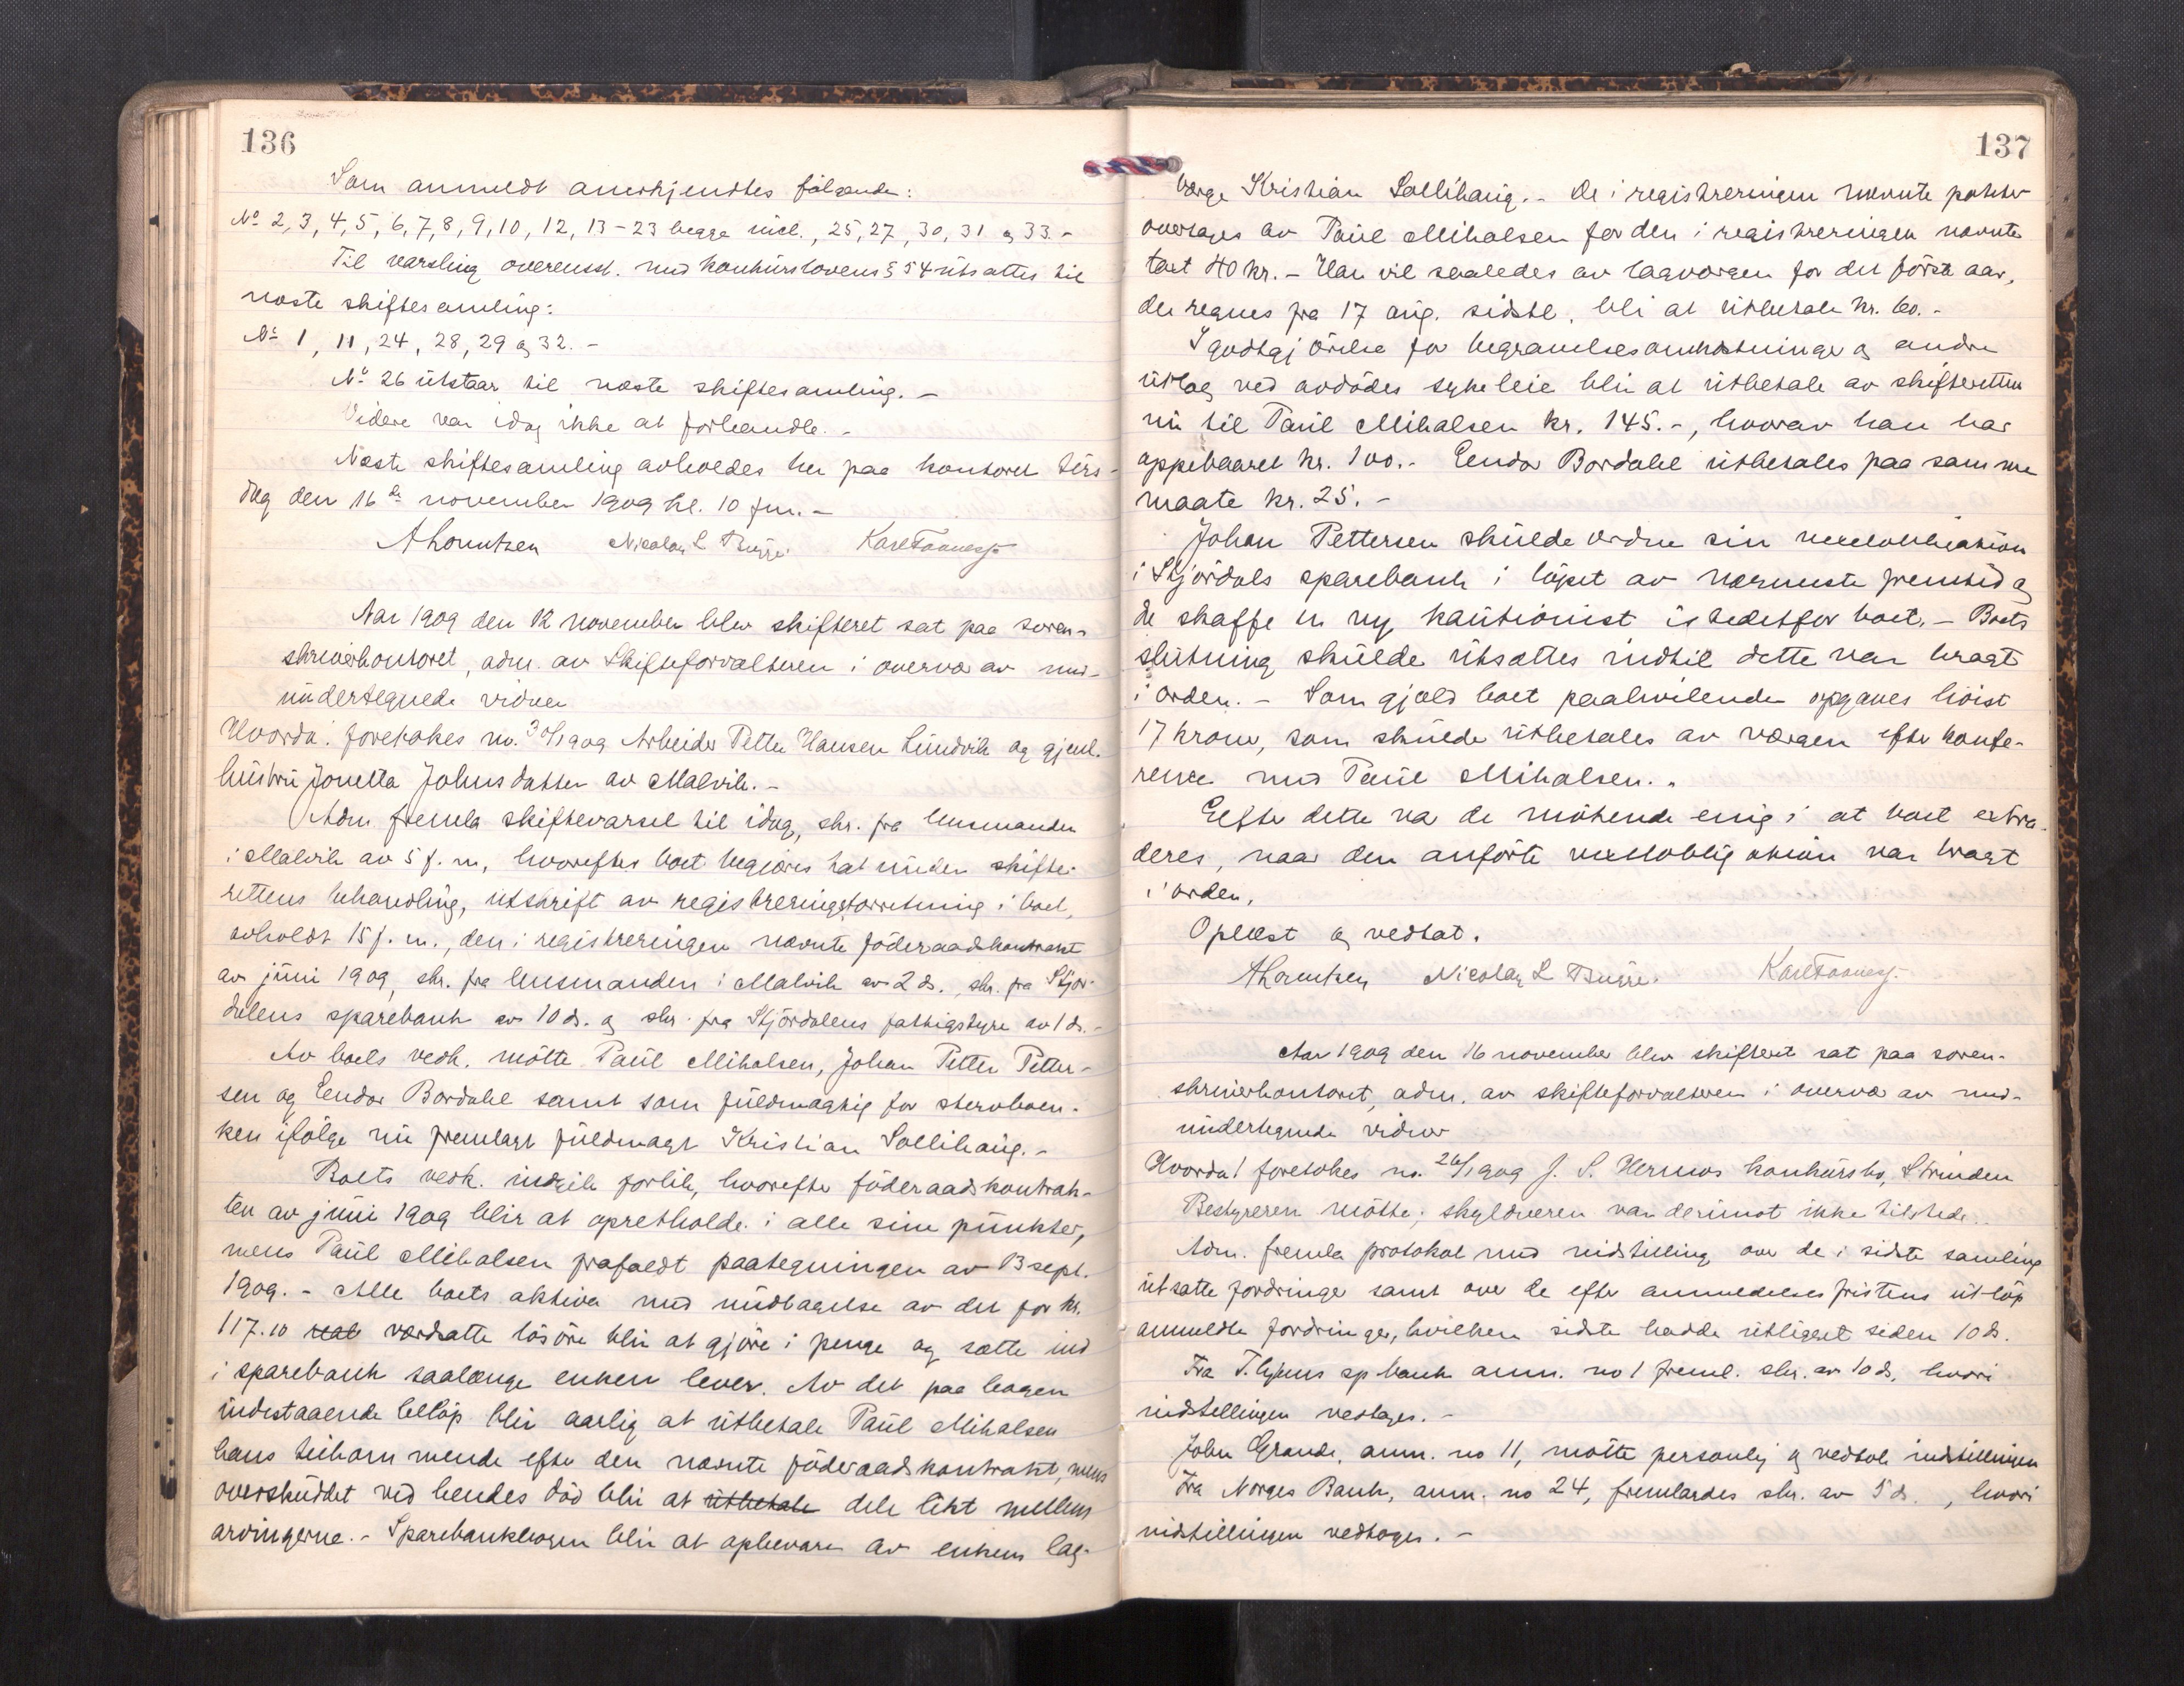 136
Som anmeldt anerkjendtes følgende:
No 2, 3, 4, 5, 6, 7, 8, 9, 10, 12, 13 - 23 begge incl., 25, 27, 30, 31 og 33. -
Til varsling overensst. med konkurslovens § 54 utsattes til
næste skiftesamling:
No 1, 11, 24, 28, 29 og 32. -
No 26 utstaar til næste skiftesamling. -
Videre var idag ikke at forhandle. -
Næste skiftesamling avholdes her paa kontoret tirs-
dag den 16de november 1909 kl. 10 fm. -
A Lorentzen Nicolay L Bugge Karl
Aar 1909 den 12 november blev skifteret sat paa soren-
skriverkontoret, adm. av Skifteforvalteren i overvær av med-
undertegnede vidner
Hvorda: foretokes no. 30/1909 Arbeider Petter Hansen Lundvik og gjenl.
hustru Jonetta Johnsdatter av Malvik. -
Adm fremla skiftevarsel til idag, skr. fra lensmanden
i Malvik av 5 f. m., hvorefter boet begjæres tat under skifte-
rettens behandling, utskrift av registreringsforretning i boet,
avholdt 15 f. m., den i registreringen nævnte føderaadskontrakt
av juni 1909, skr. fra lensmanden i Malvik av 2 ds., skr. fra Stjør-
dalens sparebank av 10 ds. og skr. fra Stjørdalens fattigstyre av 1 ds. -
Av boets vedk. møtte Paul Mikalsen, Johan Petter Petter-
sen og Eendor Bordahl samt som fuldmægtig for stervboen-
ken ifølge nu fremlagt fuldmagt Kristian Sollihaug. -
Boets vedk. indgik forlik, hvorefter føderaadskontrak-
ten av juni 1909 blir at opretholde i alle sine punkter,
mens Paul Mikalsen frafaldt paategningen av 13 sept.
1909. - Alle boets aktiva med undtagelse av det for kr.
117.10 værdsatte løsøre blir at gjøre i penge og sætte ind
i sparebank saalænge enken lever. Av det paa bogen
indestaaende beløp blir aarlig at utbetale Paul Mikalsen
hans tilkommende efter den nævnte føderaadskontrakt, mens
overskuddet ved hendes død blir at utbetale dele likt mellem
arvingerne. - Sparebankbogen blir at opbevare av enkens lag-
137
værge Kristian Sollihaug. - De i registreringen nævnte poteter
overtages av Paul Mikalsen for den i registreringen nævnte
taxt 40 kr. - Han vil saaledes av lagværgen for det første aar,
der regnes fra 17 aug. sidstl. bli at utbetale kr. 60. -
I godtgjørelse for begravelsesomkostninger og andre
utlæg ved avdødes sykeleie blir at utbetale av skifteretten
nu til Paul Mikalsen kr. 145. -, hvorav han har
oppebaaret kr. 100. - Eendor Bordahl utbetales paa samme
maate kr. 25. -
Johan Pettersen skulde ordne sin vexelobligation
i Stjørdals sparebank i løpet av nærmeste fremtid og
de skaffe en ny kautionist istedetfor boet. - Boets
slutning skulde utsættes indtil dette var bragt
i orden. - Som gjæld boet paahvilende opgaves høist
17 kroner, som skulde utbetales av værgen efter konfe-
rence med Paul Mikalsen. -
Eefter dette var de møtende enig i at boet extra-
deres, naar den anførte vexelobligation var bragt
i orden.
Oplæst og vedtat.
A Lorentzen Nicolay L Bugge Karl
Aar 1909 den 16 november blev skifteret sat paa soren-
skriverkontoret, adm. av skifteforvalteren i overvær av med-
undertegnede vidner
Hvorda! foretokes no. 26/1909 J. S. Hermos konkursbo, Strinden
Bestyreren møtte; skyldneren var derimot ikke tilstede. -
Adm. fremla protokol med indstilling over de i sidste samling
utsatte fordringer samt over de efter anmeldelsesfristens utløp
anmeldte fordringer, hvilken sidste hadde utligget siden 10 ds.
Fra T.hjems sp bank anm. no 1 freml. skr. av 10 ds. hvori
indstillingen vedtages. -
John Grande, anm. no 11, møtte personlig og vedtok indstillingen
Fra Norges Bank, anm. no 24, fremlagdes skr. av 5 ds., hvori
indstillingen vedtages. -